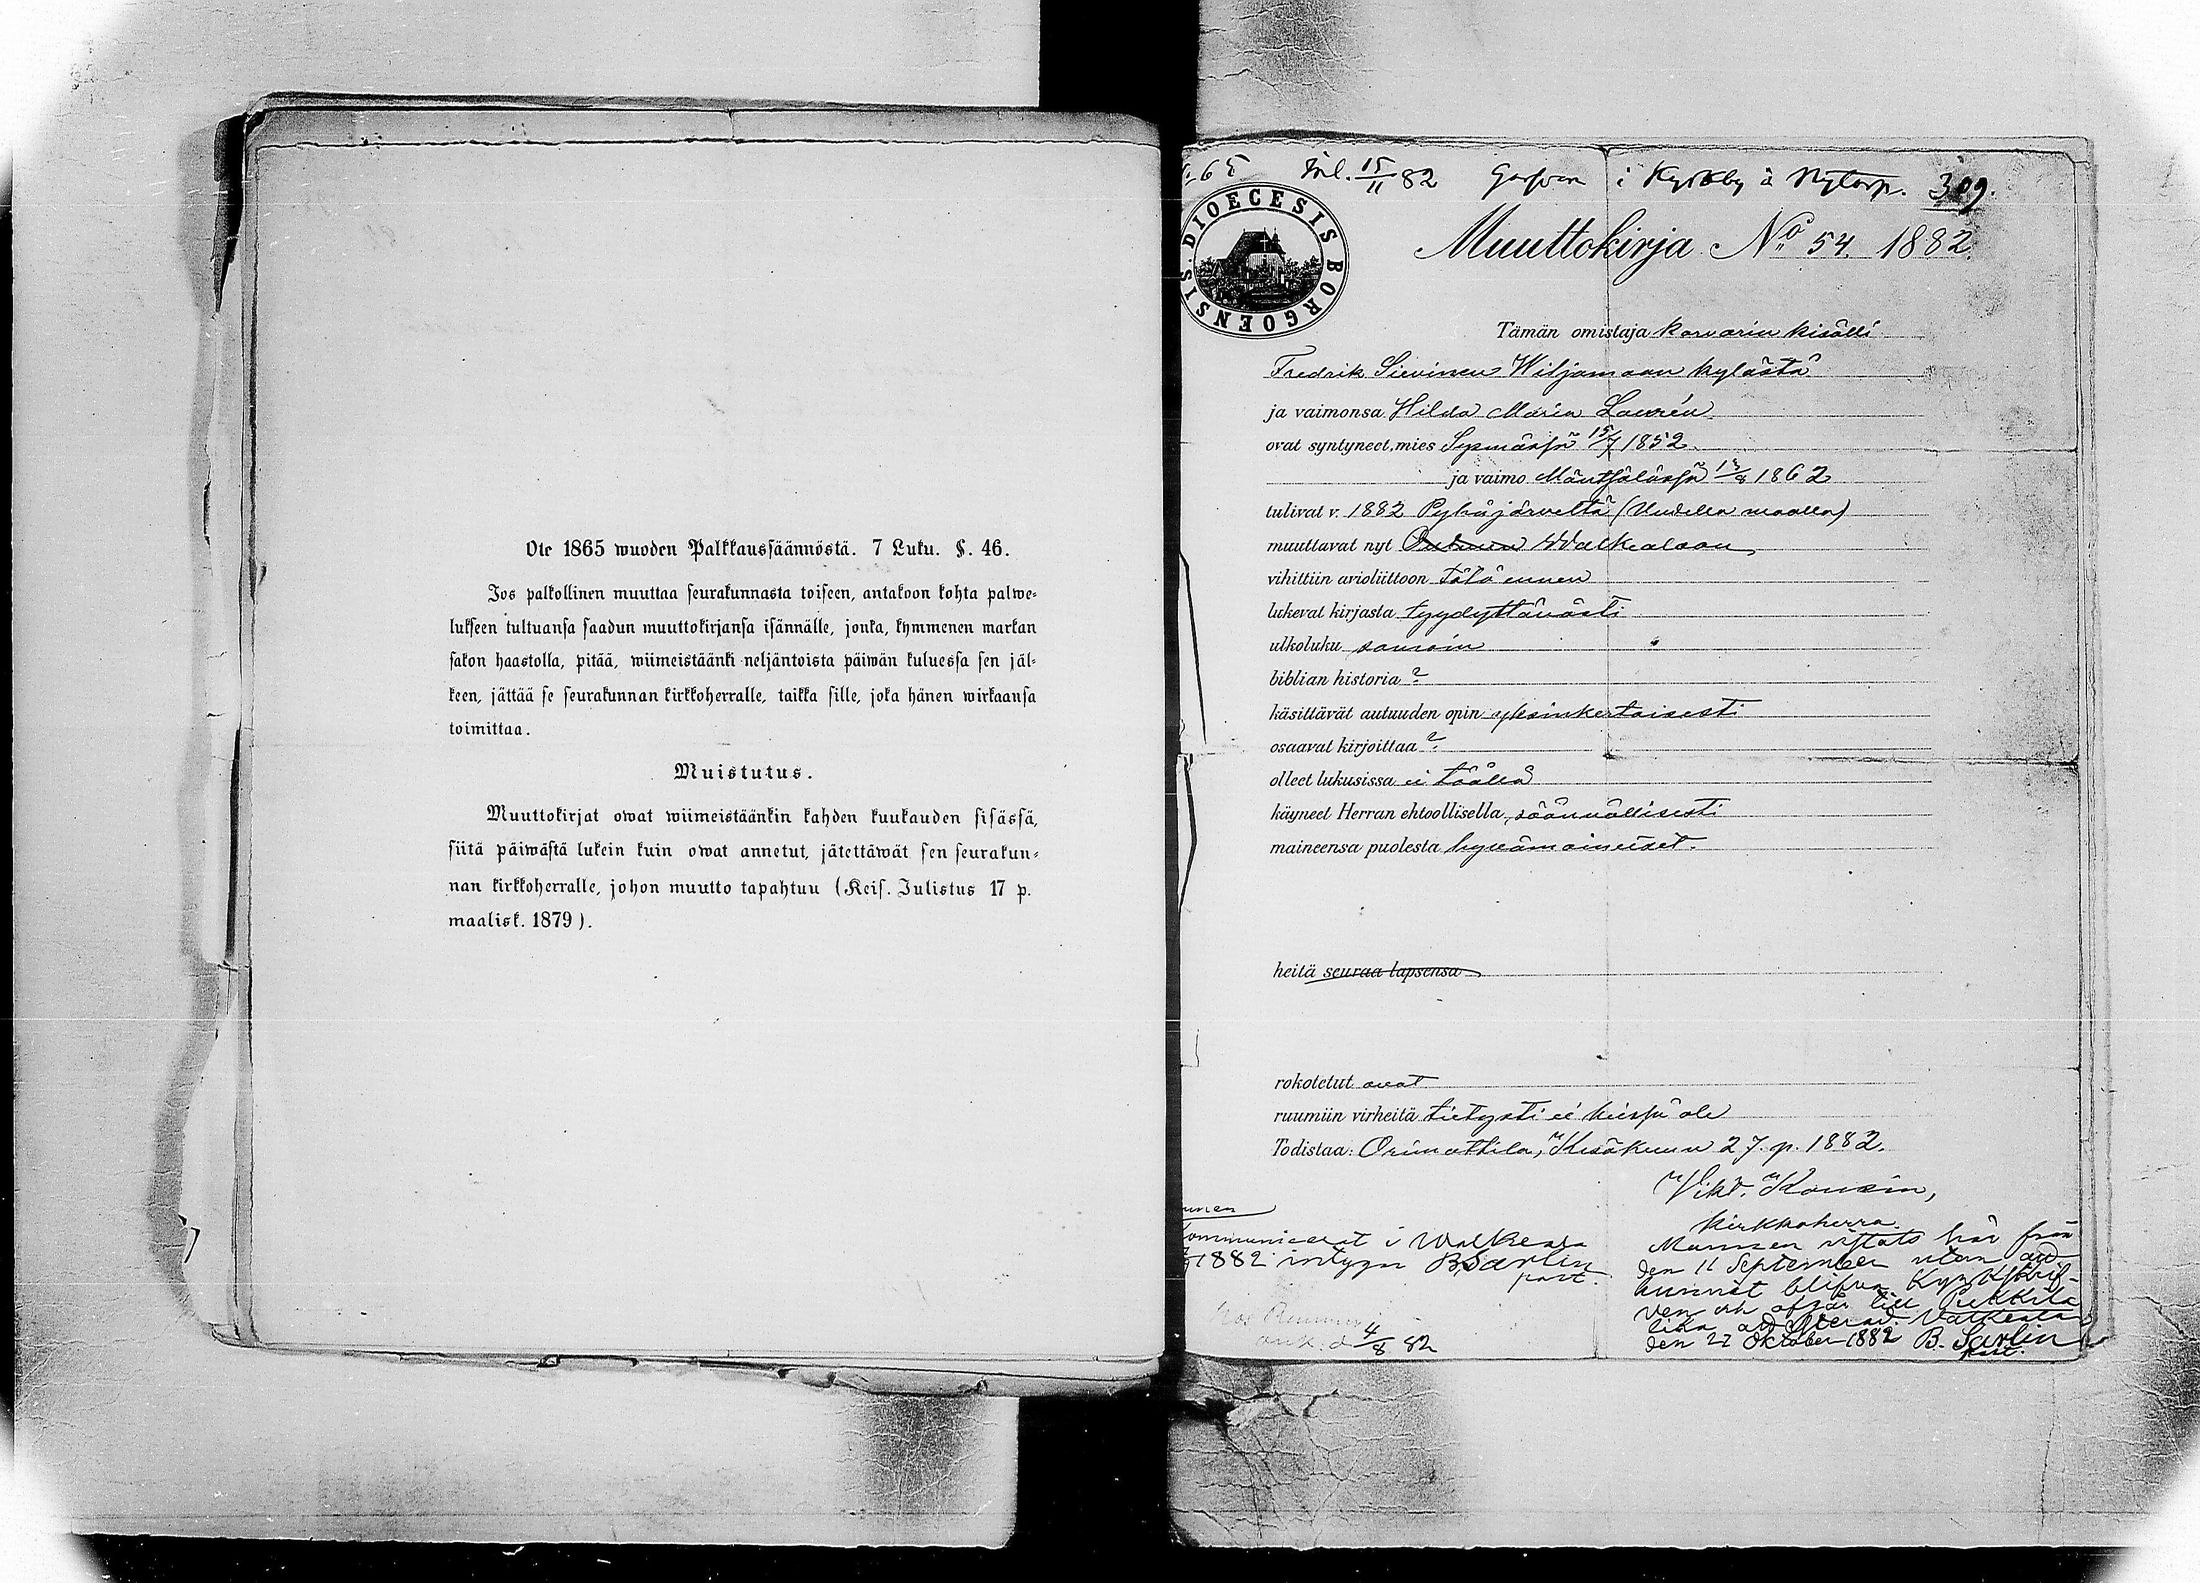 Ote 1865 wuoden Palkkaussäännöstä. 7 Luku. §. 46.
Jos palkollinen muuttaa seurakunnasta toiseen, antakoon kohta palwe-
lukseen tultuansa saadun muuttokirjansa isännälle, jonka, kymmenen markan
sakon haastolla, pitää, wiimeistäänki neljäntoista päiwän kuluessa sen jäl-
keen, jättää se seurakunnan kirkkoherralle, taikka sille, joka hänen wirkaansa
toimittaa.
Muistutus.
Muuttokirjat owat wiimeistäänkin kahden kuukauden sisässä,
siitä päiwästä lukein kuin owat annetut, jätettäwät sen seurakun-
nan kirkkoherralle, johon muutto tapahtuu (Keis. Julistus 17 p.
maalisk. 1879).
65 Inl. 15/11 82 i Kyrkby å Nytorp. 309.
DIOECESIS BORGOENSIS.
Muuttokirja No 54. 1882.
Tämän omistaja karvarin kisälli
Fredrik Sievinen Wiljamaan kylästä
ja vaimonsa Hilda Maria Laurén
ovat syntyneet, mies Sysmässä 15/7 1852
ja vaimo Mäntsälässä 13/8 1862
tulivat v. 1882 Pyhäjärveltä (Uudella maalla)
muuttavat nyt Walkealaan
vihittiin avioliittoon tätä ennen
lukevat kirjasta tyydyttävästi
ulkoluku samoin
biblian historia ?
käsittävät autuuden opin yksinkertaisesti
osaavat kirjoittaa ?
olleet lukusissa ei täällä
käyneet Herran ehtoollisella säännöllisesti
maineensa puolesta hyvämaineiset.
heitä seuraa lapsensa
rokotetut ovat
ruumiin virheitä tietysti ei heissä ole
Todistaa: Orimattila, Kesäkuun 27. p. 1882.
Vikt.
kirkkoherra.
ommunicerat i Walkeala
1882 intygar B. Sarlin
past.
4/8 82
Mannen vistats här från
den 11 September utan att
hunnit blifva Kyrkskrif-
ven och afgår till Pukkila
lika Valkeala
den 22 Oktober 1882 B. Sarlin
past.